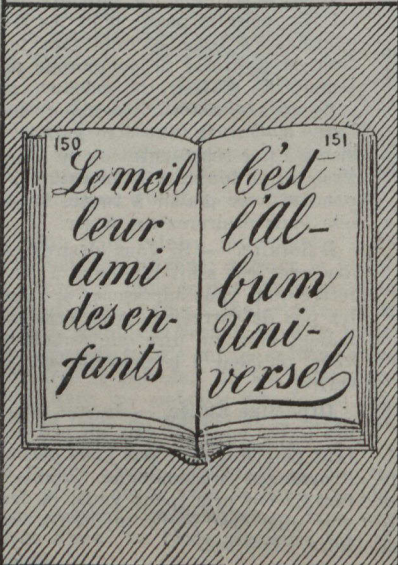 150
Le meil
leur
Ami
des en-
fants
151
C'est
l'Al-
bum
Uni-
versel